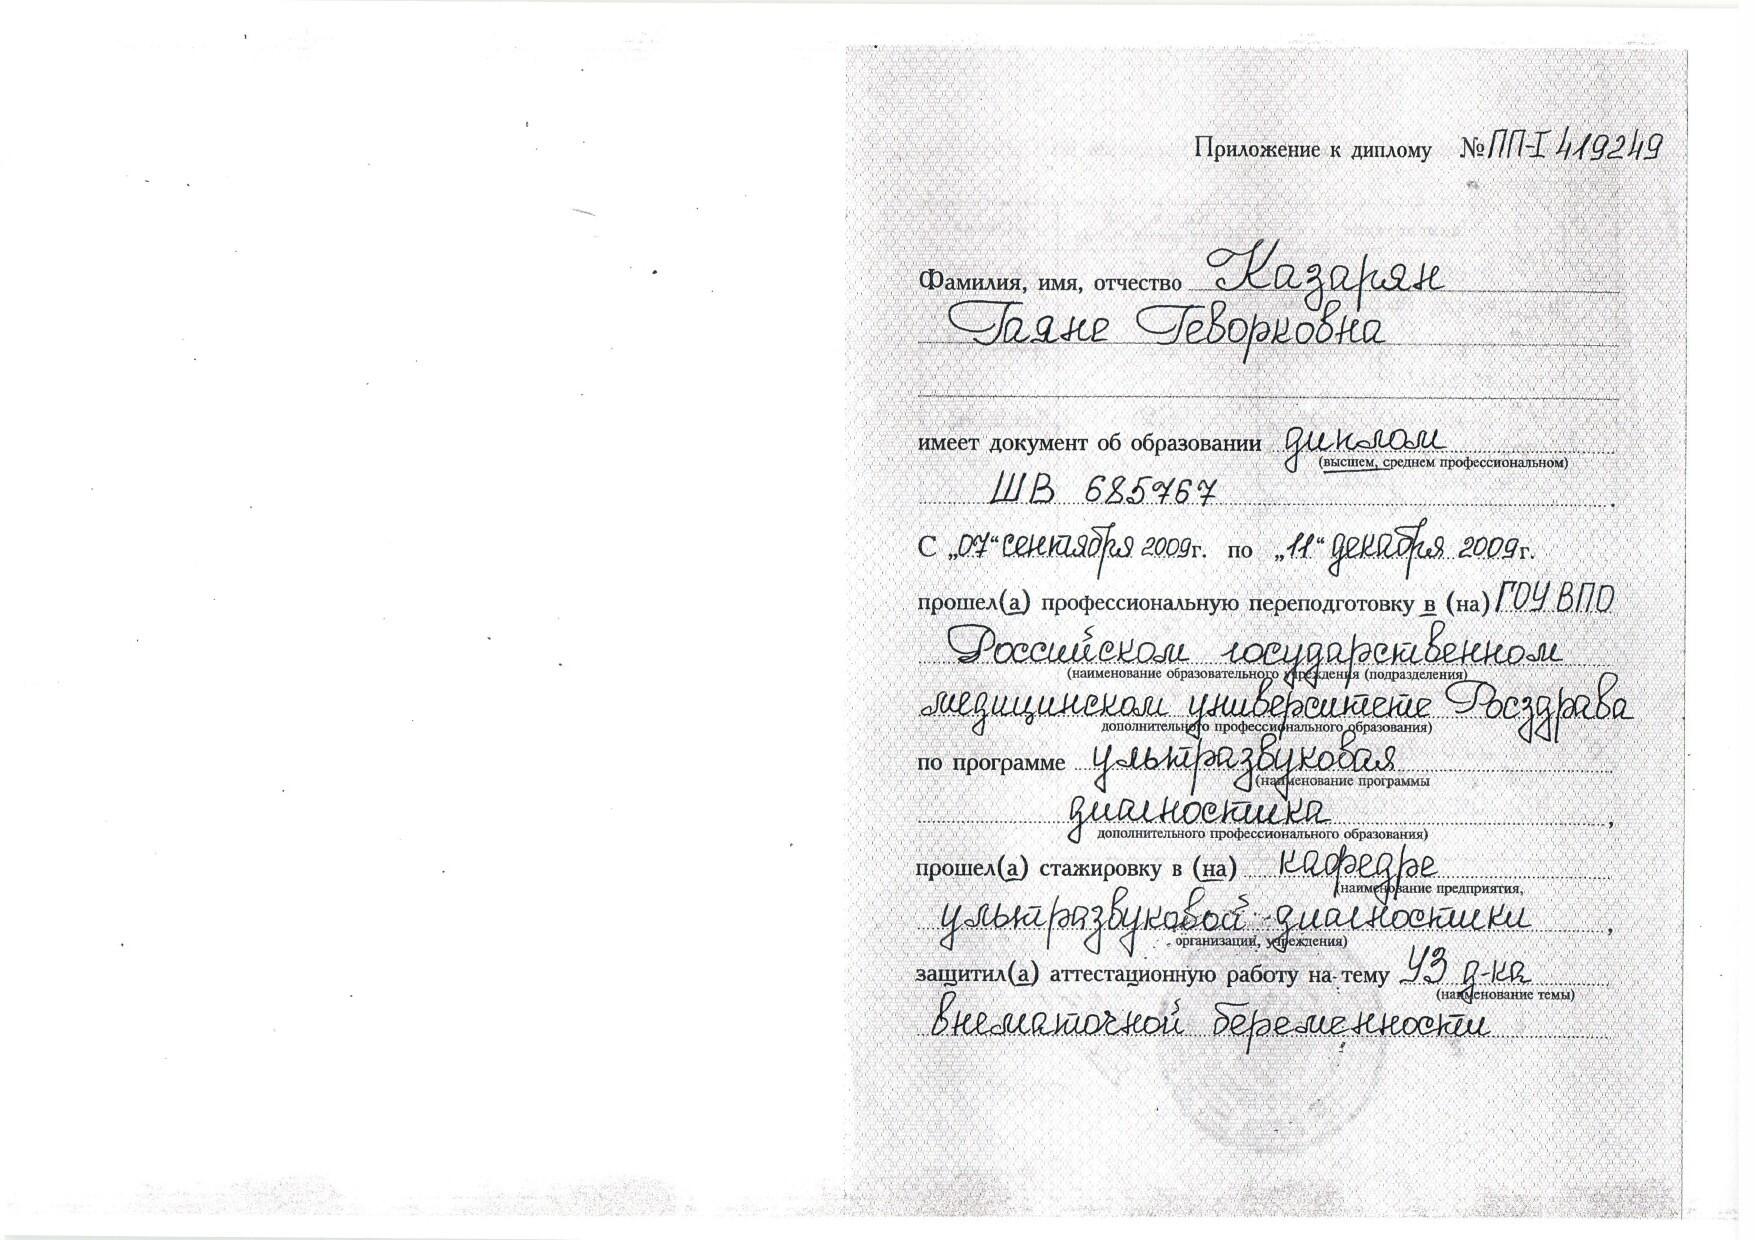 Приложение к диплому № ПП-I 419249
Фамилия, имя, отчество Казарян
Гаяне Геворковна
имеет документ об образовании диплом
(высшем, среднем профессиональном)
ШВ 685767 .
С „07“ сентября 2009г. по „11“ декабря 2009г.
прошел(а) профессиональную переподготовку в (на) ГОУ ВПО
Российском государственном
(наименование образовательного учреждения (подразделения)
медицинском университете Росздрава
дополнительного профессионального образования)
по программе ультразвуковая
(наименование программы
диагностика ,
дополнительного профессионального образования)
прошел(а) стажировку в (на) кафедре
(наименование предприятия,
ультразвуковой диагностики ,
организации, учреждения)
защитил(а) аттестационную работу на тему УЗ д-ка
(наименование темы)
внематочной беременности